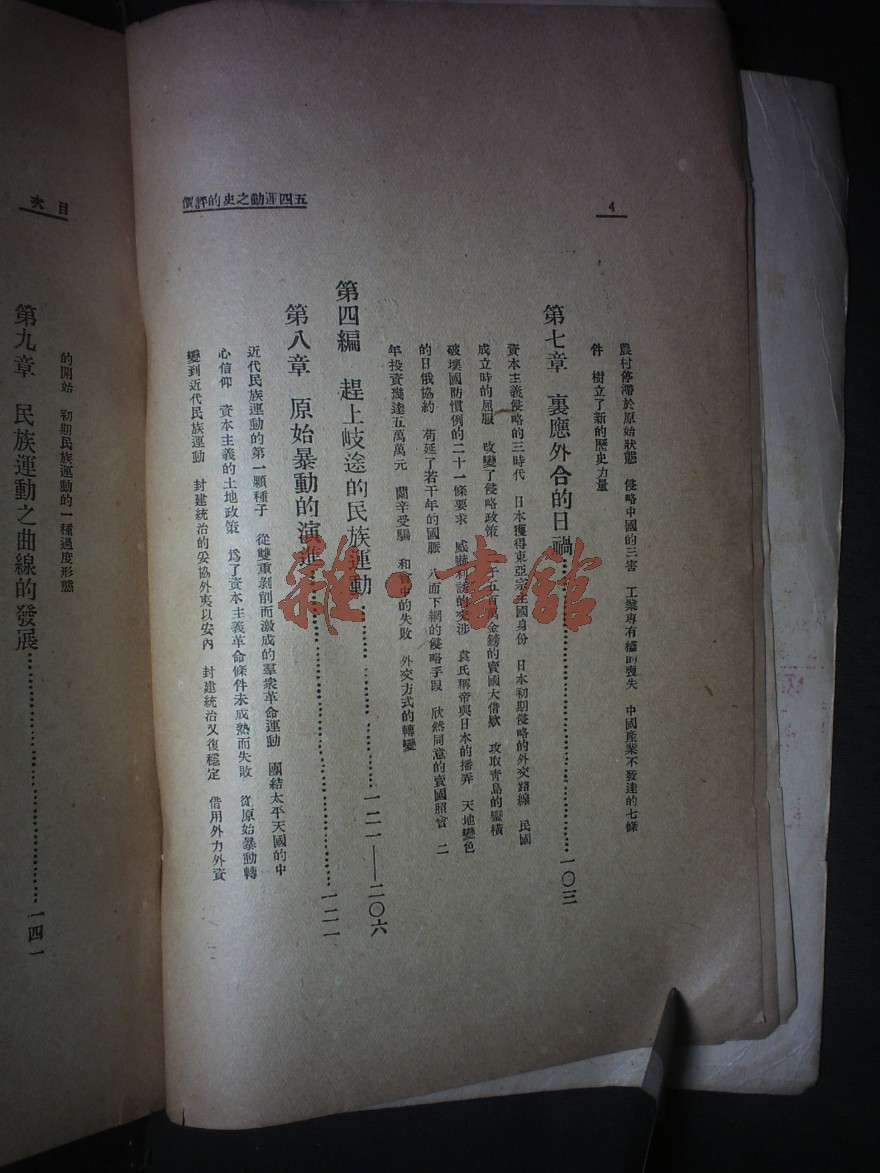 五四運動之史的評價
4
農村停滯於原始狀態 侵略中國的三害 工業專有權的喪失 中國產業不發達的七條
件 樹立了新的歷史力量
第七章 裏應外合的日禍…………一〇三
資本主義侵略的三時代 日本獲得東亞宗主國身份 日本初期侵略的外交路線 民國
成立時的屈服 改變了侵略政策 五百 金鎊的賣國大借款 攻取青島的蠻橫
破壞國防慣例的二十一條要求 威嚇利誘的交涉 袁氏稱帝與日本的播弄 天地變色
的日俄協約 苟延了若干年的國脈 八面下網的侵略手段 欣然同意的賣國照會 二
年投資幾達五萬萬元 蘭辛受騙 和會中的失敗 外交方式的轉變
第四編 趕上岐途的民族運動…………一二一——二〇六
第八章 原始暴動的演進…………一二一
近代民族運動的第一顆種子 從雙重剝削而激成的羣衆革命運動 團結太平天國的中
心信仰 資本主義的土地政策 爲了資本主義革命條件未成熟而失敗 從原始暴動轉
變到近代民族運動 封建統治的妥協外夷以安內 封建統治又復穩定 借用外力外資
目次
的開始 初期民族運動的一種過度形態
第九章 民族運動之曲線的發展…………一四一
雜·書館